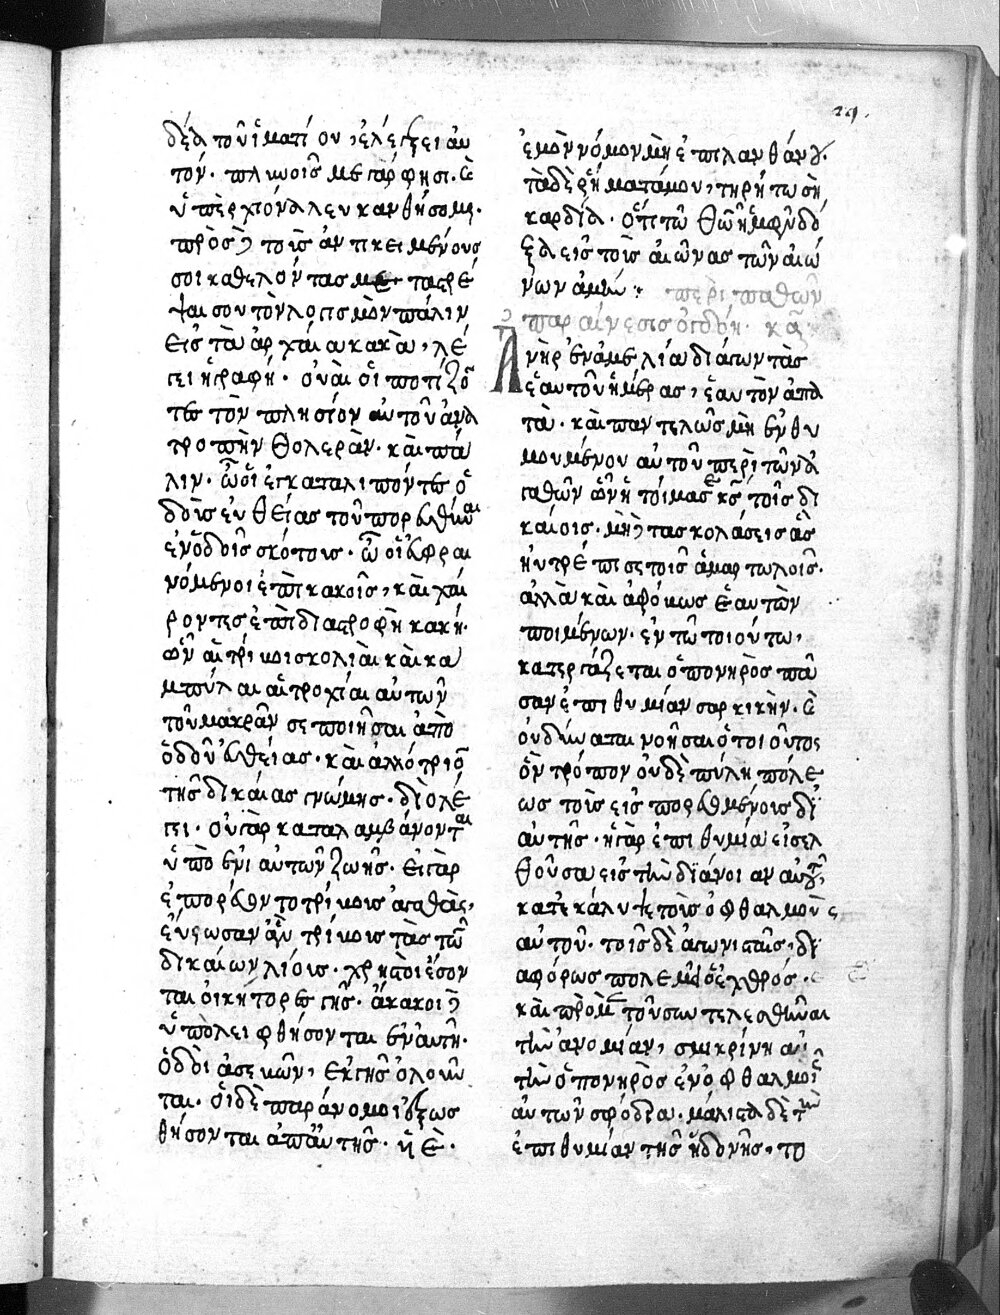 29.
δέα τοῦ ἱματίου, ἐλέγξει αὐ
τόν. πλυνεῖς με γάρ φησι. καὶ
ὑπὲρ χιόνα λευκανθήσομαι.
πρὸς δὲ τοὺς ἀντικειμένους
σοι καθελόντας με τα στρέ
ψαι σου τὸν λογισμὸν πάλιν
εἰς τὰ ἀρχαῖα κακά, λέ
γει ἡ γραφή. οὐαὶ οἱ ποτίζον
τες τὸν πλησίον αὐτοῦ ἀνα
τροπὴν θολεράν. καὶ πά
λιν. ὦ οἱ ἐγκαταλιπόντες ὁ
δοὺς εὐθείας τοῦ πορεύεσθαι
ἐν ὁδοῖς σκότους. ὦ οἱ εὐφραι
νόμενοι ἐπὶ κακοῖς, καὶ χαί
ροντες ἐπὶ διαστροφῇ κακῇ.
ὧν αἱ τρίβοι σκολιαὶ καὶ κα
μπύλαι αἱ τροχίαι αὐτῶν
τοῦ μακράν σε ποιῆσαι ἀπὸ
ὁδοῦ εὐθείας. καὶ ἀλλότριον
τῆς δικαίας γνώμης. διὸ λέ
γει. οὐ γὰρ καταλαμβάνονται
ὑπὸ ἐνιαυτῶν ζωῆς. εἰ γὰρ
ἐπορεύοντο τρίβους ἀγαθάς,
εὕρωσαν ἂν τρίβους τὰς τῶν
δικαίων λείους. χρηστοὶ ἔσον
ται οἰκήτορες γῆς. ἄκακοι δὲ
ὑπολειφθήσονται ἐν αὐτῇ.
ὁδοὶ ἀσεβῶν, ἐκ γῆς ὀλοῦν
ται. οἱ δὲ παράνομοι ἐξωσ
θήσονται ἀπ' αὐτῆς. υἱέ.
ἐμῶν νόμων μὴ ἐπιλανθάνου.
τὰ δὲ ῥήματά μου, τηρήτω σὴ
καρδία. ὅτι τῷ θεῷ ἡμῶν δό
ξα εἰς τοὺς αἰῶνας τῶν αἰώ
νων ἀμήν: περὶ παθῶν
παραίνεσις
Ἀνὴρ ἐν ἀμελίᾳ διάγων τὰς
ἑαυτοῦ ἡμέρας, ἑαυτὸν ἀπα
τᾷ. καὶ παντελῶς μὴ ἐνθυ
μουμένου αὐτοῦ περὶ τῶν ἀ
γαθῶν ὧν ἡτοίμασεν κύριος τοῖς δι
καίοις. μὴ δὲ τὰς κολάσεις ἃς
ηὐτρέπισε τοῖς ἁμαρτωλοῖς.
ἀλλὰ καὶ ἀφόβως ἑαυτὸν
ποιμένων. ἐν τῷ τοιούτῳ,
κατεργάζεται ὁ πονηρὸς πᾶ
σαν ἐπιθυμίαν σαρκικήν. καὶ
οὐ δύναται νοῆσαι ὁ τοιοῦτος
ὃν τρόπον οὐδὲ πύλη πόλε
ως τοὺς εἰσπορευομένους δι'
αὐτῆς. ἡ γὰρ ἐπιθυμία εἰσελ
θοῦσα εἰς τὴν διάνοιαν αὐτοῦ,
κατεκάλυψε τοὺς ὀφθαλμοὺς
αὐτοῦ. τοῖς δὲ ἀγωνισταῖς, δι
αφόρως πολεμεῖ ὁ ἐχθρός.
καὶ πρὸ μὲν τοῦ συντελεσθῆναι
τὴν ἀνομίαν, σμικρύνει αὐ
τὴν ὁ πονηρὸς ἐν ὀφθαλμοῖς
αὐτῶν σφόδρα. μάλιστα δὲ τὴν
ἐπιθυμίαν τῆς ἡδονῆς, το